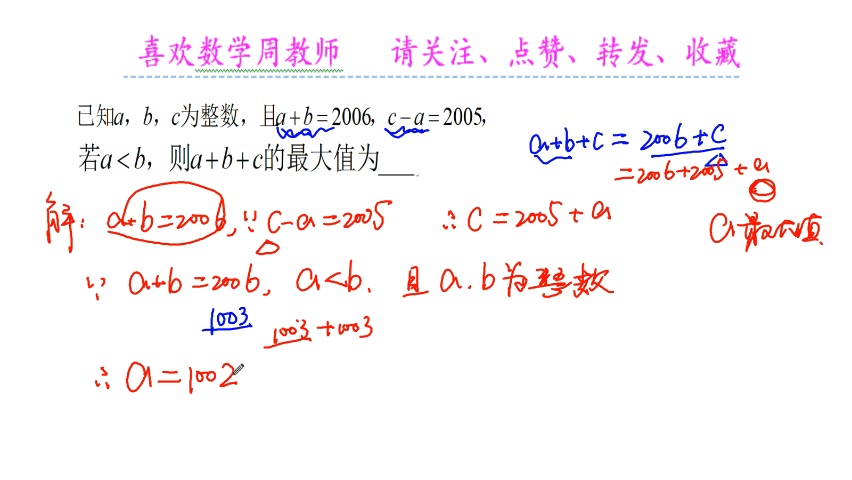 喜欢数学周教师 请关注、点赞、转发、收藏
已知a，b，c为整数，且a+b=2006，c−a=2005，
若a<b，则a+b+c的最大值为____.
a+b+c = 2006+c
=2006+2005+a
a最大值
解：a+b=2006，∵c-a=2005 ∴c=2005+a
∵ a+b=2006，a<b. 且a.b为整数
1003
1003+1003
∴ a=1002